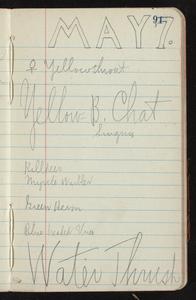 91
MAY 7.
♀ Yellowthroat
Yellow B. Chat
Singing
Killdeer
Myrtle Warbler
Green Heron
Blue headed Vireo
Water Thrush